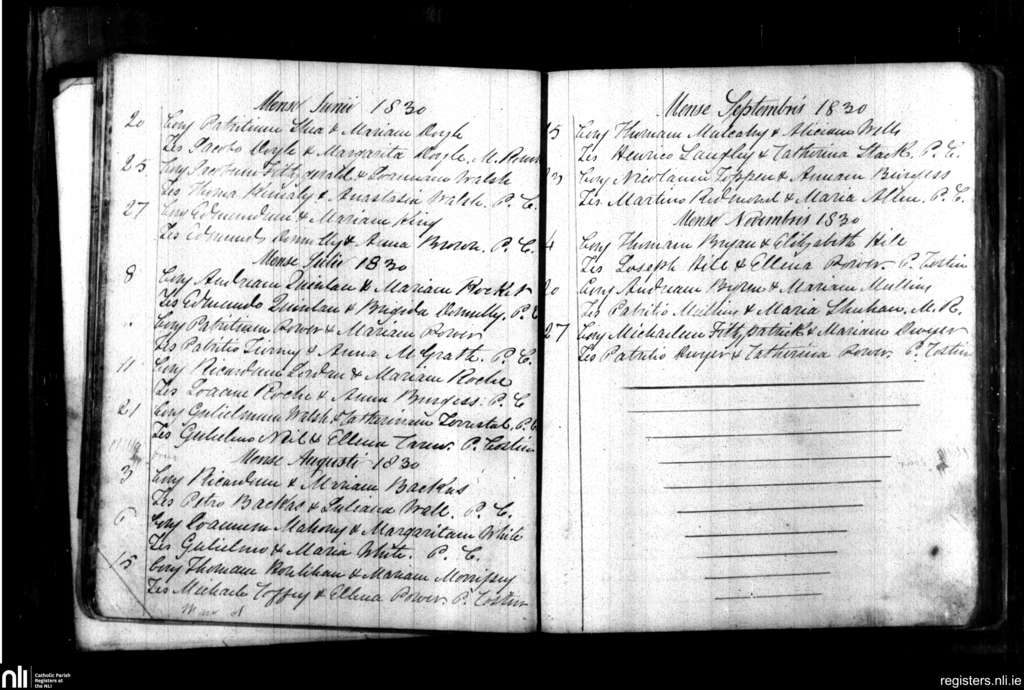 Mense Junii 1830
20 Conj Patritium Shea & Mariam Doyle
Tes Jacobo Doyle & Margarita Doyle. M.
25 Conj Fitzgerald & Joannam Walsh
Tes Thoma & Anastasia Walsh. P. C.
27 Conj Edmundum & Mariam King
Tes Edmundo Donnolly & Anna Brown. P. C.
Mense Julii 1830
8 Conj Andream Quinlan & Mariam Rocket
Tes Edmundo Quinlan & Brigida Donnelly. P. C
Conj Patritium Power & Mariam Power
Tes Patritio Tierney & Anna McGrath. P. C.
11 Conj Ricardum & Mariam Roche
Tes Joanne Roche & Anna Burgess. P. C
21 Conj Gulielmum Walsh & Catharinam Forrestal. P. C
Tes Gulielmo Neil & Ellena Carew. P. Costin
Mense Augusti 1830
3 Conj Ricardum & Mariam Backas
Tes Petro Backas & Juliana Wall. P. C.
6 Conj Joannem Mahony & Margaritam White
Tes Gulielmo & Maria White. P. C.
15 Conj Thomam Houlihan & Mariam Morrissy
Tes Michaele Coffey & Ellena Power. P. Costin
Mense Septembris 1830
15 Conj Thomam Mulcahy & Aliciam Wells
Tes Henrico Langley & Catherina Stack. P. C.
23 Conj Nicolaum Toppen & Annam Burgess
Tes Martino Redmond & Maria Allen. P. C.
Mense Novembris 1830
4 Conj Thomam Bryan & Elizabeth Hile
Tes Joseph Hile & Ellena Power. P. Costin
20 Conj Andream Brown & Mariam Mullins
Tes Patritio Mullins & Maria Shuhan. M. R.
27 Conj Michaelem Fitzpatrick & Mariam Dwyer
Tes Patritio Dwyer & Catherina Power. P. Costin
nli Catholic Parish
Registers at
the NLI
registers.nli.ie